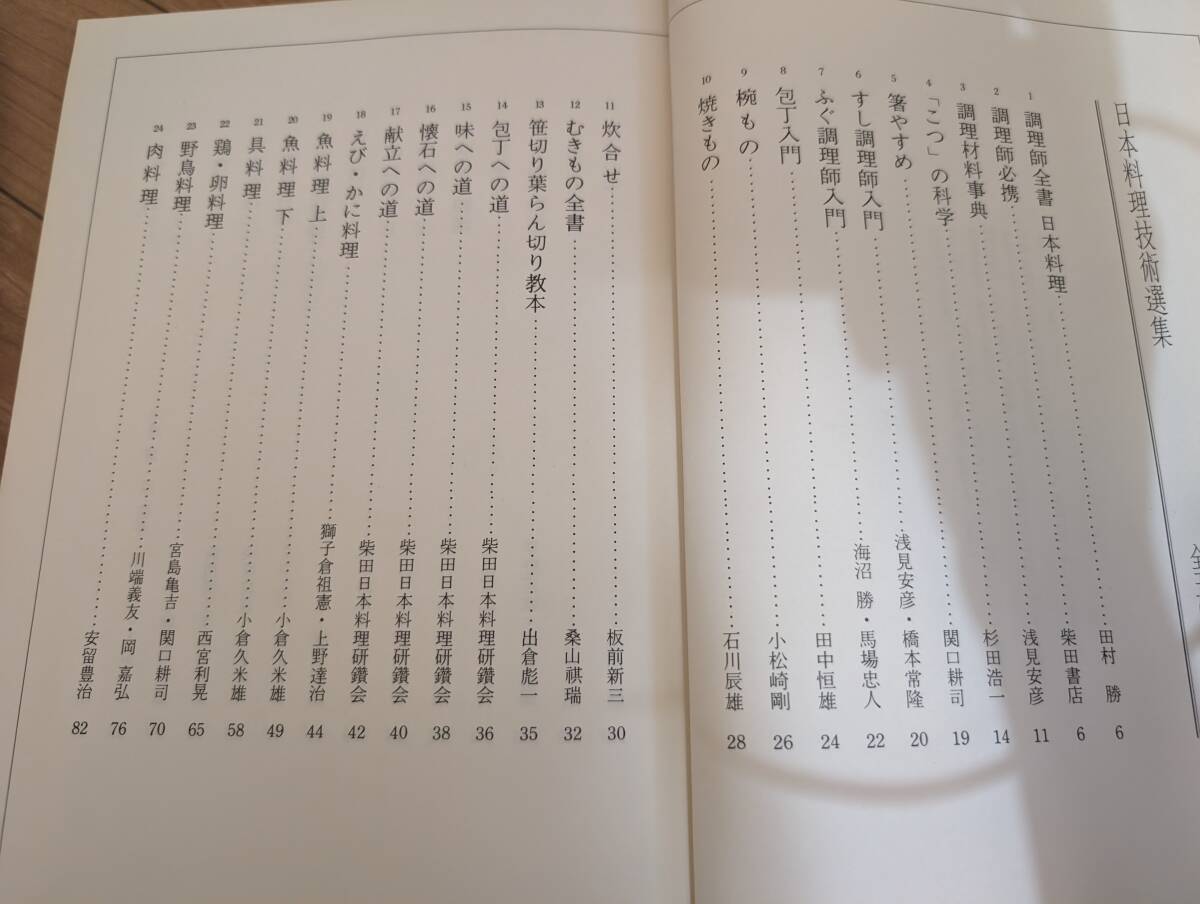 日本料理技術選集
1 調理師全書 日本料理……田村 勝 6
2 調理師必携……柴田書店 6
3 調理材料事典……浅見安彦 11
4 「こつ」の科学……杉田浩一 14
5 箸やすめ……関口耕司 19
6 すし調理師入門……浅見安彦・橋本常隆 20
7 ふぐ調理師入門……海沼 勝・馬場忠人 22
8 包丁入門……田中恒雄 24
9 椀もの……小松崎剛 26
10 焼きもの……石川辰雄 28
11 炊合せ……板前新三 30
12 むきもの全書……桑山祺瑞 32
13 笹切り葉らん切り教本……出倉彪一 35
14 包丁への道……柴田日本料理研鑽会 36
15 味への道……柴田日本料理研鑽会 38
16 懐石への道……柴田日本料理研鑽会 40
17 献立への道……柴田日本料理研鑽会 42
18 えび・かに料理……獅子倉祖憲・上野達治 44
19 魚料理 上……小倉久米雄 49
20 魚料理 下……小倉久米雄 58
21 貝料理……西宮利晃 65
22 鶏・卵料理……宮島亀吉・関口耕司 70
23 野鳥料理……川端義友・岡 嘉弘 76
24 肉料理……安留豊治 82